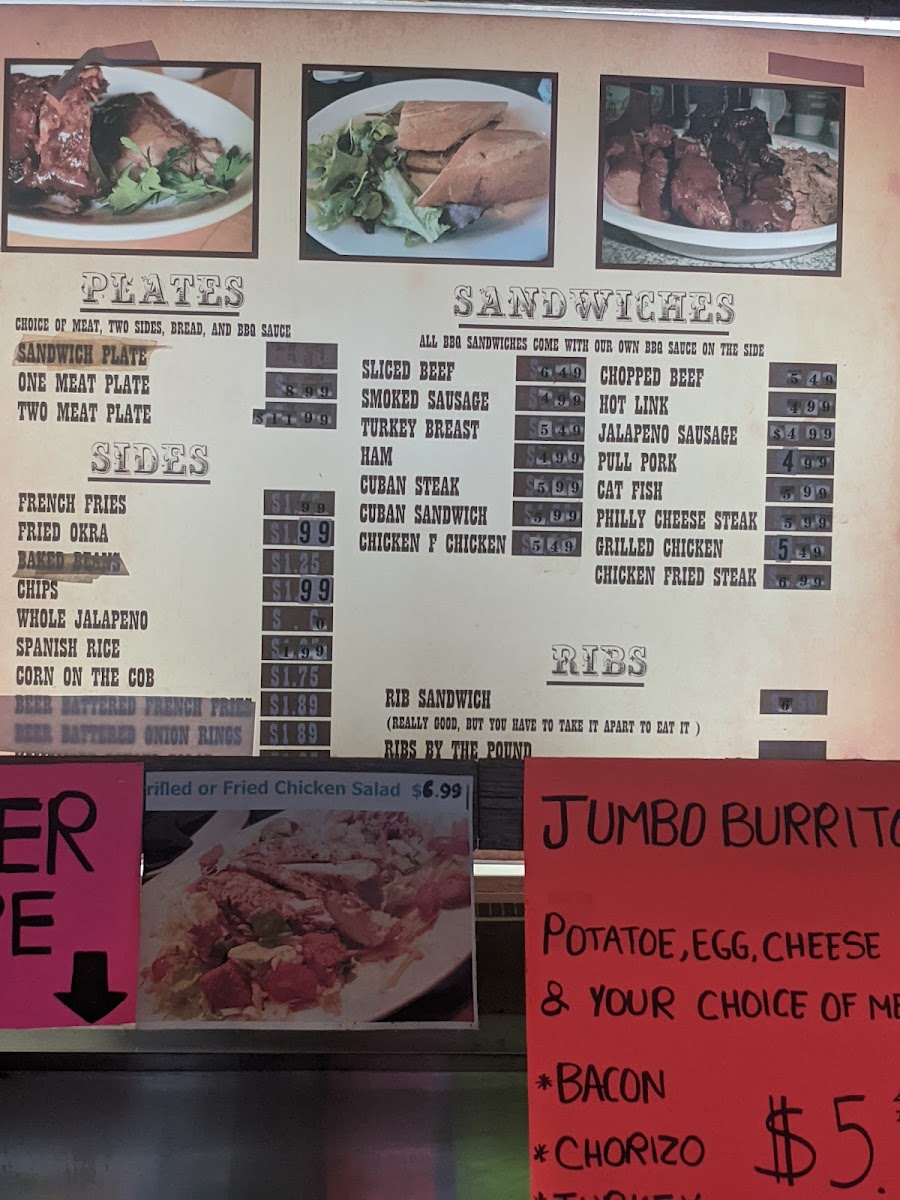 PLATES
CHOICE OF MEAT, TWO SIDES, BREAD, AND BBQ SAUCE
SANDWICH PLATE
ONE MEAT PLATE 8.99
TWO MEAT PLATE $11.99
SIDES
FRENCH FRIES $1.99
FRIED OKRA $1.99
BAKED BEANS $1.25
CHIPS $1.99
WHOLE JALAPENO
SPANISH RICE $1.99
CORN ON THE COB $1.75
BEER BATTERED FRENCH FRIES $1.89
BEER BATTERED ONION RINGS $1.89
SANDWICHES
ALL BBQ SANDWICHES COME WITH OUR OWN BBQ SAUCE ON THE SIDE
SLICED BEEF $6.49
SMOKED SAUSAGE $4.99
TURKEY BREAST $5.49
HAM $4.99
CUBAN STEAK $5.99
CUBAN SANDWICH $5.99
CHICKEN F CHICKEN $5.49
CHOPPED BEEF 5.49
HOT LINK 4.99
JALAPENO SAUSAGE $4.99
PULL PORK 4.99
CAT FISH 6.99
PHILLY CHEESE STEAK 5.99
GRILLED CHICKEN 5.49
CHICKEN FRIED STEAK 6.99
RIBS
RIB SANDWICH
(REALLY GOOD, BUT YOU HAVE TO TAKE IT APART TO EAT IT )
RIBS BY THE POUND
ER
PE
rilled or Fried Chicken Salad $6.99
JUMBO BURRITO
POTATOE, EGG, CHEESE
& YOUR CHOICE OF ME
*BACON
*CHORIZO
*TURKEY
$5.